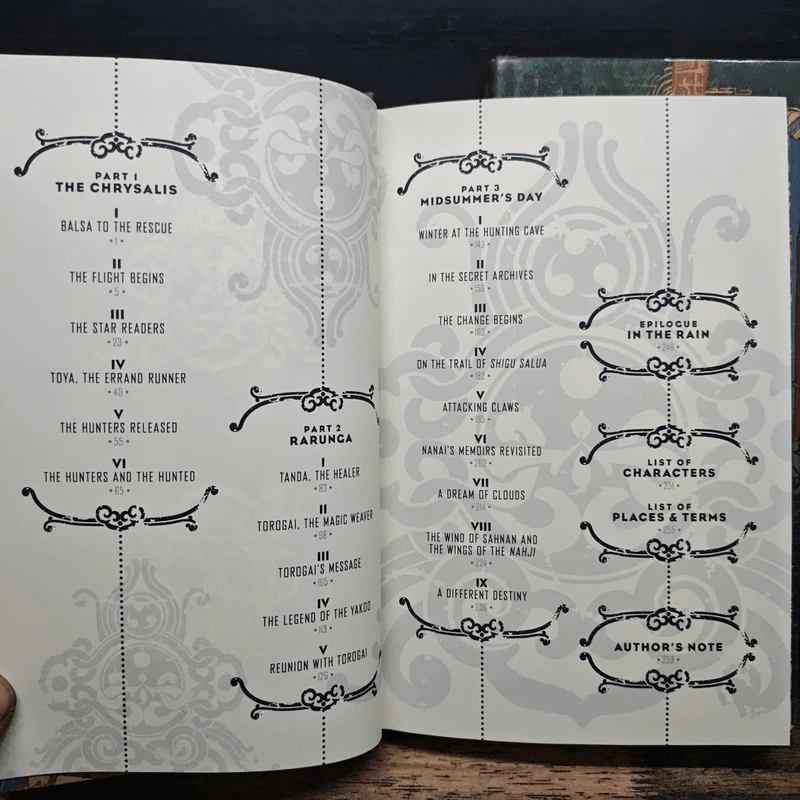 PART I
THE CHRYSALIS
I
BALSA TO THE RESCUE
• 1 •
II
THE FLIGHT BEGINS
• 5 •
III
THE STAR READERS
• 23 •
IV
TOYA, THE ERRAND RUNNER
• 40 •
V
THE HUNTERS RELEASED
• 55 •
VI
THE HUNTERS AND THE HUNTED
• 65 •
PART 2
RARUNGA
I
TANDA, THE HEALER
• 83 •
II
TOROGAI, THE MAGIC WEAVER
• 98 •
III
TOROGAI'S MESSAGE
• 105 •
IV
THE LEGEND OF THE YAKOO
• 113 •
V
REUNION WITH TOROGAI
• 126 •
PART 3
MIDSUMMER'S DAY
I
WINTER AT THE HUNTING CAVE
• 143 •
II
IN THE SECRET ARCHIVES
• 156 •
III
THE CHANGE BEGINS
• 163 •
IV
ON THE TRAIL OF SHIGU SALUA
• 182 •
V
ATTACKING CLAWS
• 195 •
VI
NANAI'S MEMOIRS REVISITED
• 202 •
VII
A DREAM OF CLOUDS
• 214 •
VIII
THE WIND OF SAHNAN AND
THE WINGS OF THE NAHJI
• 224 •
IX
A DIFFERENT DESTINY
• 236 •
EPILOGUE
IN THE RAIN
• 246 •
LIST OF
CHARACTERS
• 251 •
LIST OF
PLACES & TERMS
• 255 •
AUTHOR'S NOTE
• 259 •